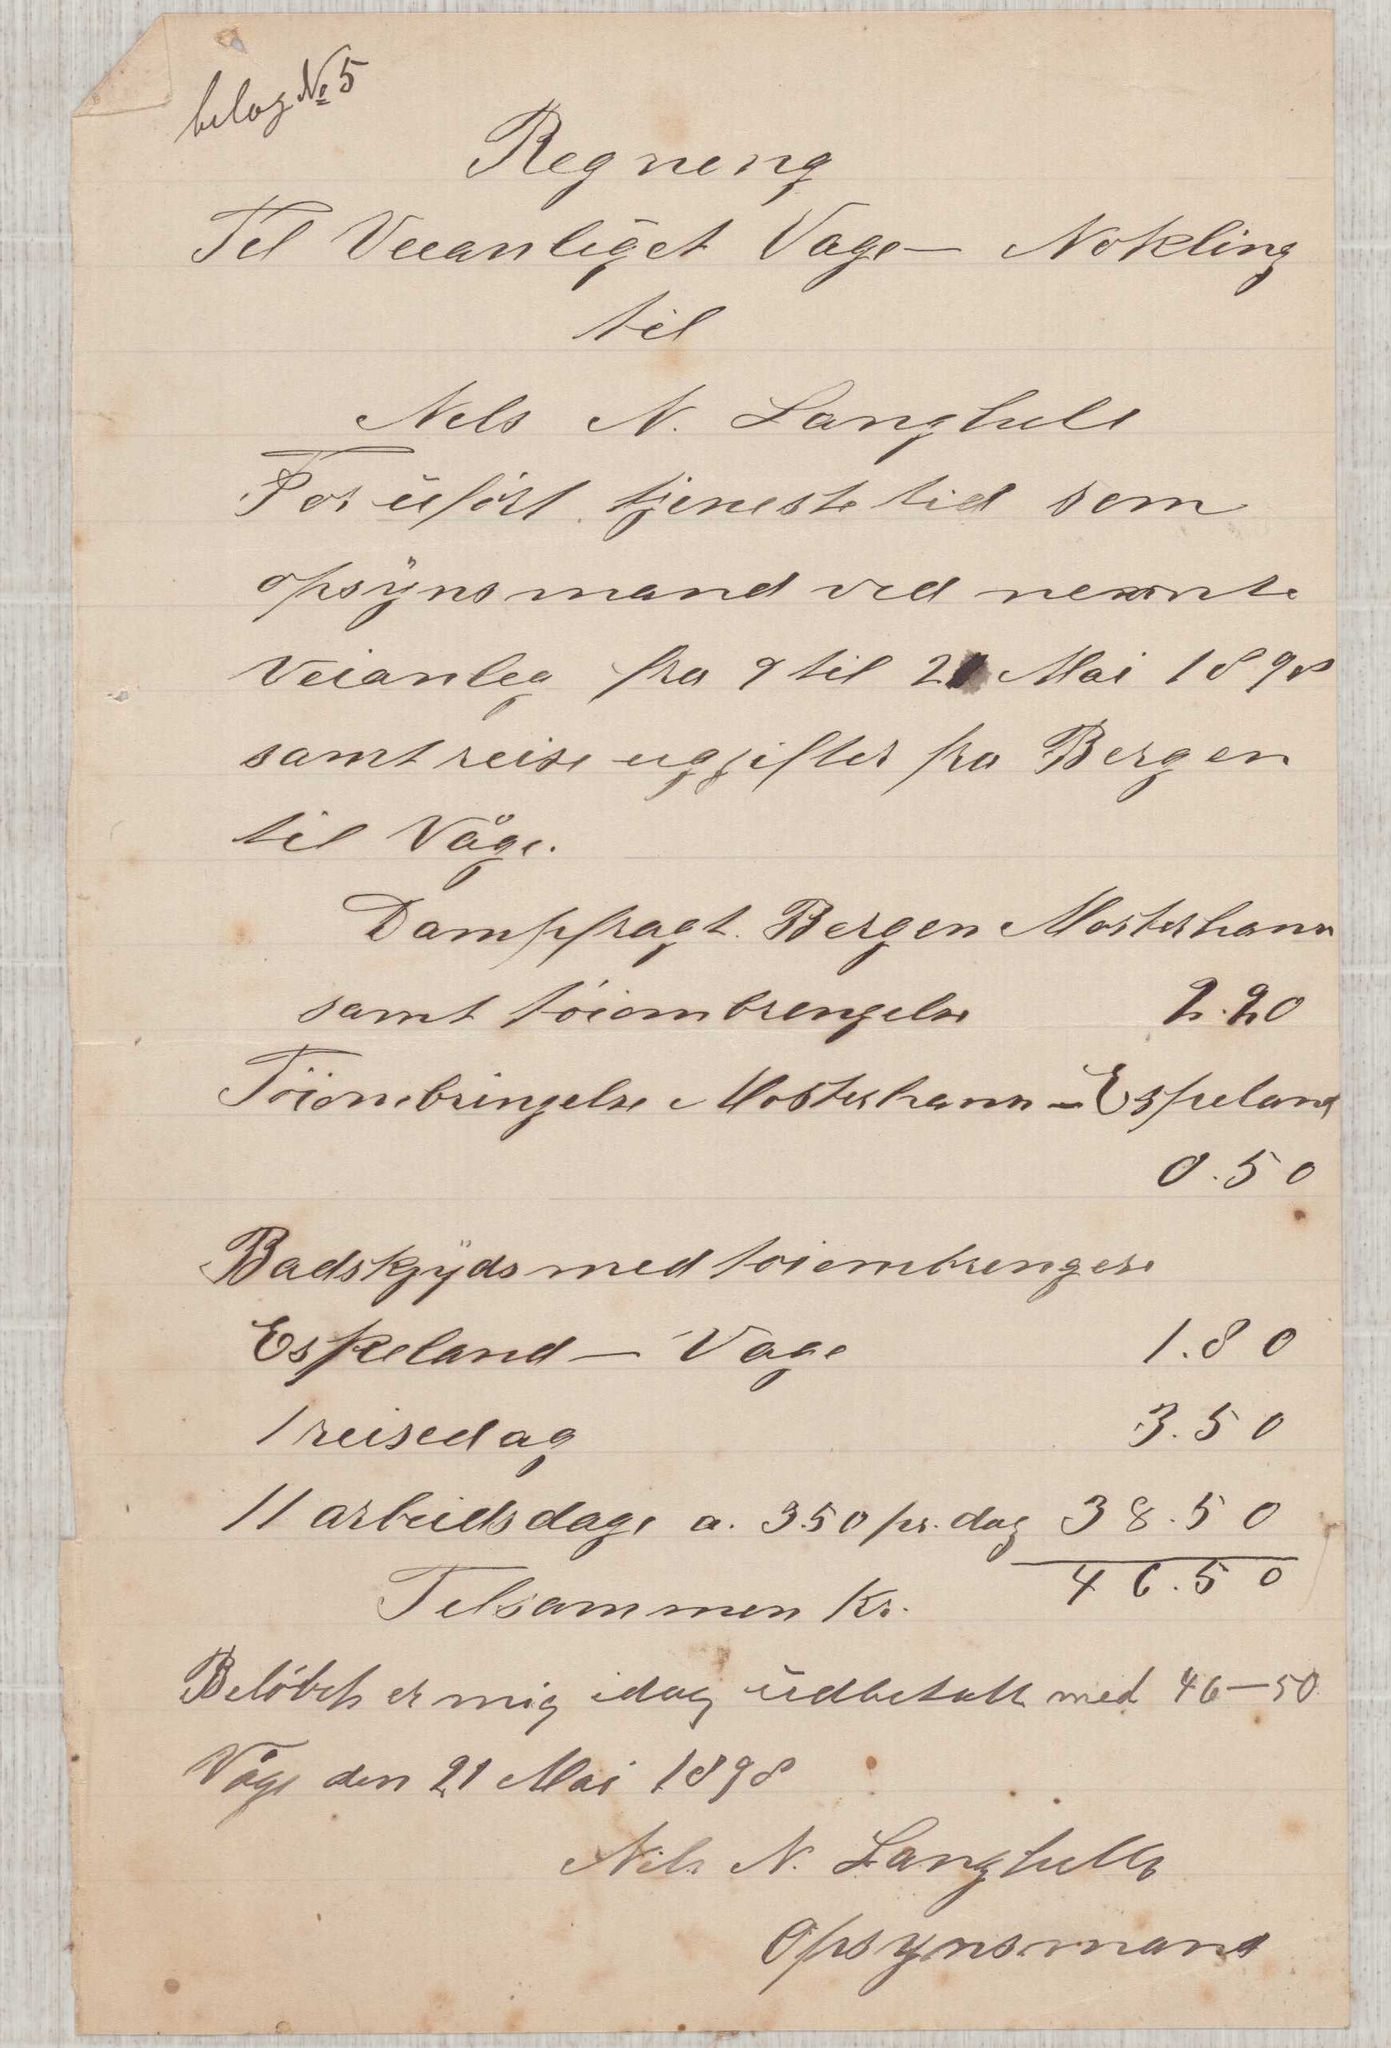 belag № 5
Regneng
Tel Veeanliget Vage — Nokling
til
Nels N. Langhell
For uført tjeneste tid som
opsÿnsmand ved nemnte
Veianleg fra 9 til 21 Mai 1898
samt reise ugjifter fra Bergen
til Våge.
Dampfragt. Bergen Mosterhavn
samt tóiombrengelse 2.20
Töiombringelse Mosterhavn — Espeland
0.50
Badskjÿds med toiombrengese
Espeland — Vage 1.80
1 reisedag 3.50
11 arbeidsdage a. 3.50 pr. dag 38.50
Telsammen Kr. 46.50
Belóbet er mig idag udbetalt med 46—50
Våge den 21 Mai 1898
Nils N. Langhelle
Opsynsmand